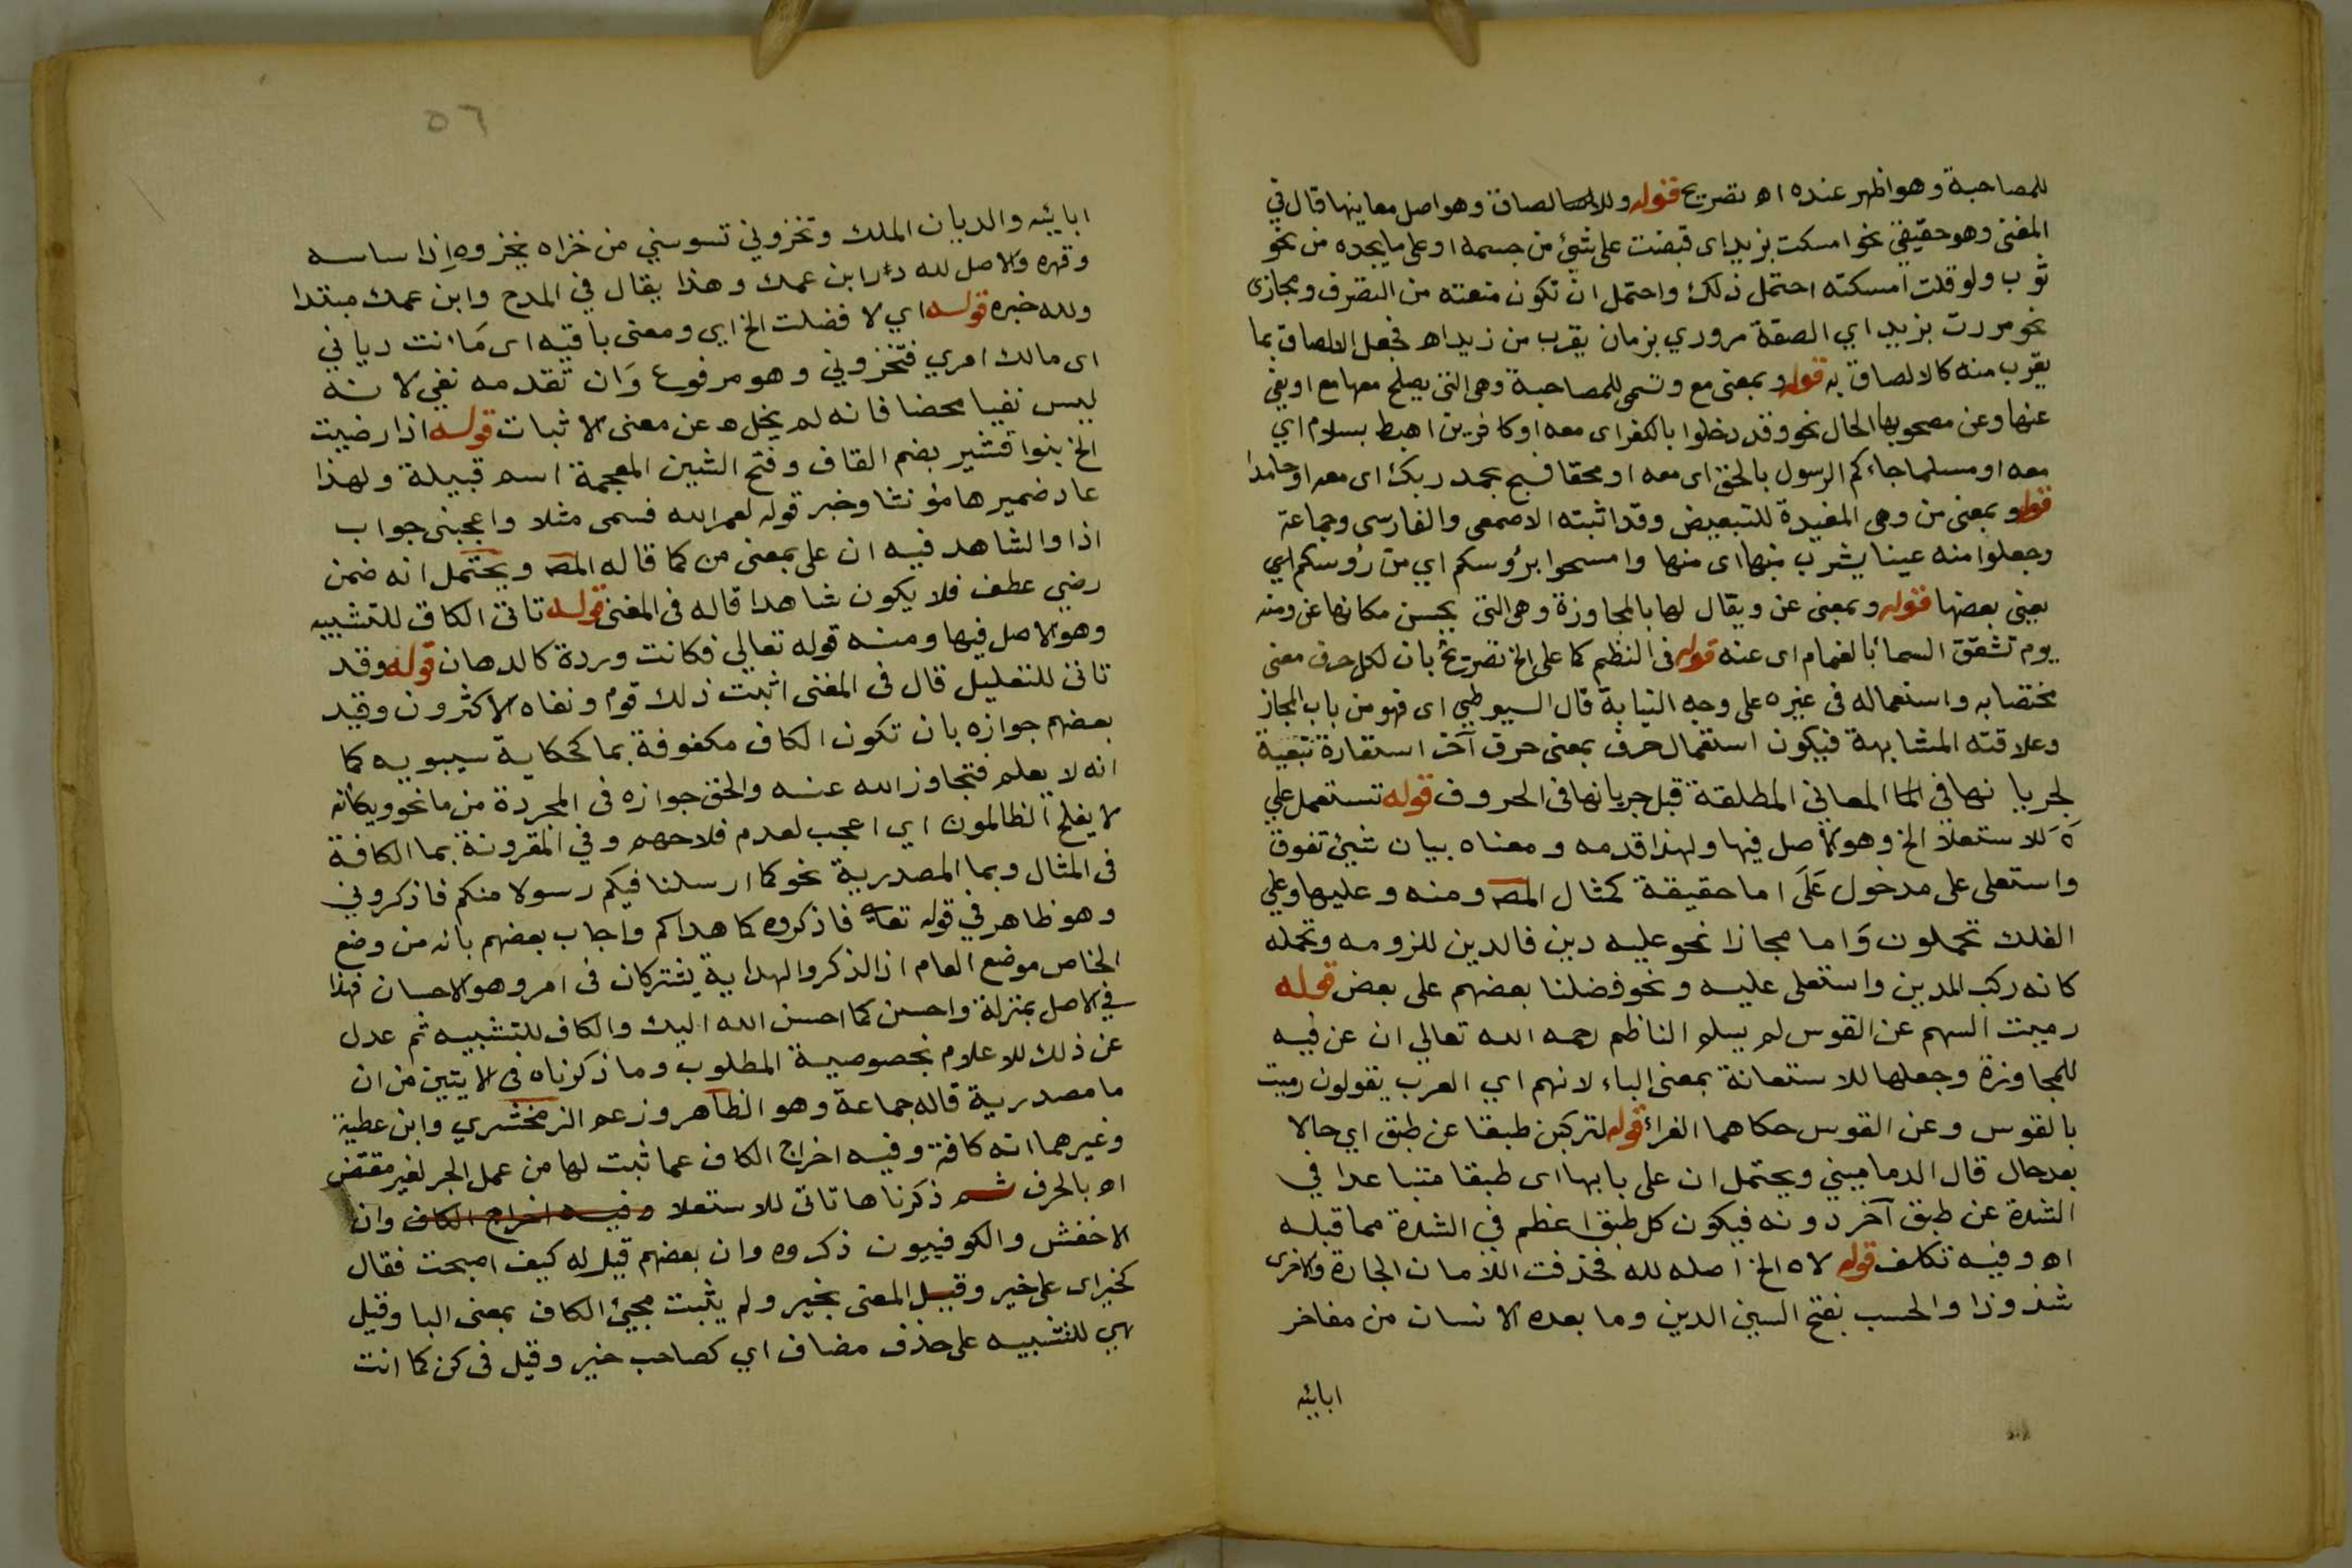 للمصاحبة وهو اظهر عنده اه تصريح قوله وللالصاق وهو اصل معانيها قال في
المغنى وهو حقيقي نحو امسكت بزيد اى قبضت على شئ من جسمه او على ما يجده من نحو
ثوب ولو قلت امسكته احتمل ذلك واحتمل ان تكون منعته من التصرف ومجازى
نحو مررت بزيد اي الصقة مروري بزمان يقرب من زيد اه فجعل الالصاق بما
يقرب منه كالالصاق به قوله وبمعنى مع وتسمى للمصاحبة وهى التى يصلح معها مع او يغني
عنها وعن مصحوبها الحال نحو وقد دخلوا بالكفر اى معه او كافرين اهبط بسلام اي
معه او مسلما جاءكم الرسول بالحق اى معه او محقا فسبح بحمد ربك اى معه او حامدا
قوله وبمعنى من وهى المفيدة للتبعيض وقد اثبته الاصمعى والفارسى وجماعة
وجعلوا منه عينا يشرب بها اى منها وامسحوا برؤسكم اي من رؤسكم اي
يعنى بعضها قوله وبمعنى عن ويقال لها باالمجاوزة وهى التى يحسن مكانها عن ومنه
يوم تشقق السمأ بالغمام اى عنه قوله فى النظم كما على الخ تصريح بان لكل حرف معنى
مختصا به واستعماله فى غيره على وجه النيابة قال السيوطي اى فهو من باب المجاز
وعلاقته المشابهة فيكون استعمال حرف بمعنى حرف آخر استعارة تبعية
لجريانها في المعاني المطلقة قبل جريانها فى الحروف قوله تستعمل على
للاستعلا الخ وهو الاصل فيها ولهذا قدمه ومعناه بيان شئ تفوق
واستعلى على مدخول عَلَى اما حقيقة كمثال المصـ ومنه وعليها وعلي
الفلك تحملون وَاما مجازا نحو عليه دين فالدين للزومه وتحمله
كانه ركب المدين واستعلى عليه ونحو فضلنا بعضهم على بعض قوله
رميت السهم عن القوس لم يسلم الناظم رحمه الله تعالي ان عن فيه
للمجاوزة وجعلها للاستعانة بمعنى الباء لانهم اي العرب يقولون رميت
بالقوس وعن القوس حكاهما الفراء قوله لتركبن طبقا عن طبق اي حالا
بعد حال قال الدماميني ويحتمل ان على بابها اى طبقا متباعدا في
الشدة عن طبق آخر دونه فيكون كل طبق اعظم في الشدة مما قبله
اه وفيه تكلف قوله لاه الخ اصله لله فحذفت اللامان الجارة والاخرى
شذوذا والحسب بفتح السين الدين وما بعده الانسان من مفاخر
ابائيه
٥٦
ابائيه والديان الملك وتخزوني تسوسني من خزاه يخزوه اذا ساسه
وقهره والاصل لله در ابن عمك وهذا يقال في المدح وابن عمك مبتدا
ولله خبره قوله اي لا فضلت الخ اي ومعنى باقيه اى مَا انت دياني
اى مالك امري فتخزوني وهو مرفوع وَان تقدمه نفي لانه
ليس نفيا محضا فانه لم يخل عن معنى الاثبات قوله اذا رضيت
الخ بنوا قشير بضم القاف وفتح الشين المعجمة اسم قبيلة ولهذا
عاد ضميرها مؤنثا وخبر قوله لعمر الله قسمى مثلا واعجبنى جواب
اذا والشاهد فيه ان على بمعنى من كما قاله المصـ ويحتمل انه ضمن
رضي عطف فلا يكون شاهدا قاله فى المغنى قوله تاتى الكاف للتشبيه
وهو الاصل فيها ومنه قوله تعالي فكانت وردة كالدهان قوله وقد
تاتى للتعليل قال فى المغنى اثبت ذلك قوم ونفاه الاكثرون وقيد
بعضهم جوازه بان تكون الكاف مكفوفة بما كحكاية سيبويه كما
انه لا يعلم فتجاوز الله عنه والحق جوازه فى المجردة من ما نحو ويكأنه
لا يفلح الظالمون اي اعجب لعدم فلاحهم وفي المقرونة بما الكافة
فى المثال وبما المصدرية نحو كما ارسلنا فيكم رسولا منكم فاذكروني
وهو ظاهر في قوله تعالى فاذكروه كما هداكم واجاب بعضهم بانه من وضع
الخاص موضع العام اذ الذكر والهداية يشتركان فى امر وهو الاحسان فهذا
في الاصل بمنزلة واحسن كما احسن الله اليك والكاف للتشبيه ثم عدل
عن ذلك للاعلام بخصوصية المطلوب وما ذكرناه فى الايتين من ان
ما مصدرية قاله جماعة وهو الظاهر وزعم الزمخشري وابن عطية
وغيرهما انه كافة وفيه اخراج الكاف عما ثبت لها من عمل الجر لغير مقتض
اه بالحرف ثم ذكرناها تاتى للاستعلا وفيه اخراج الكاف وان
الاخفش والكوفييون ذكروه وان بعضهم قيل له كيف اصبحت فقال
كخير اى على خير وقيل المعنى بخير ولم يثبت مجيئ الكاف بمعنى البا وقيل
هي للتشبيه على حذف مضاف اي كصاحب خير وقيل فى كن كما انت